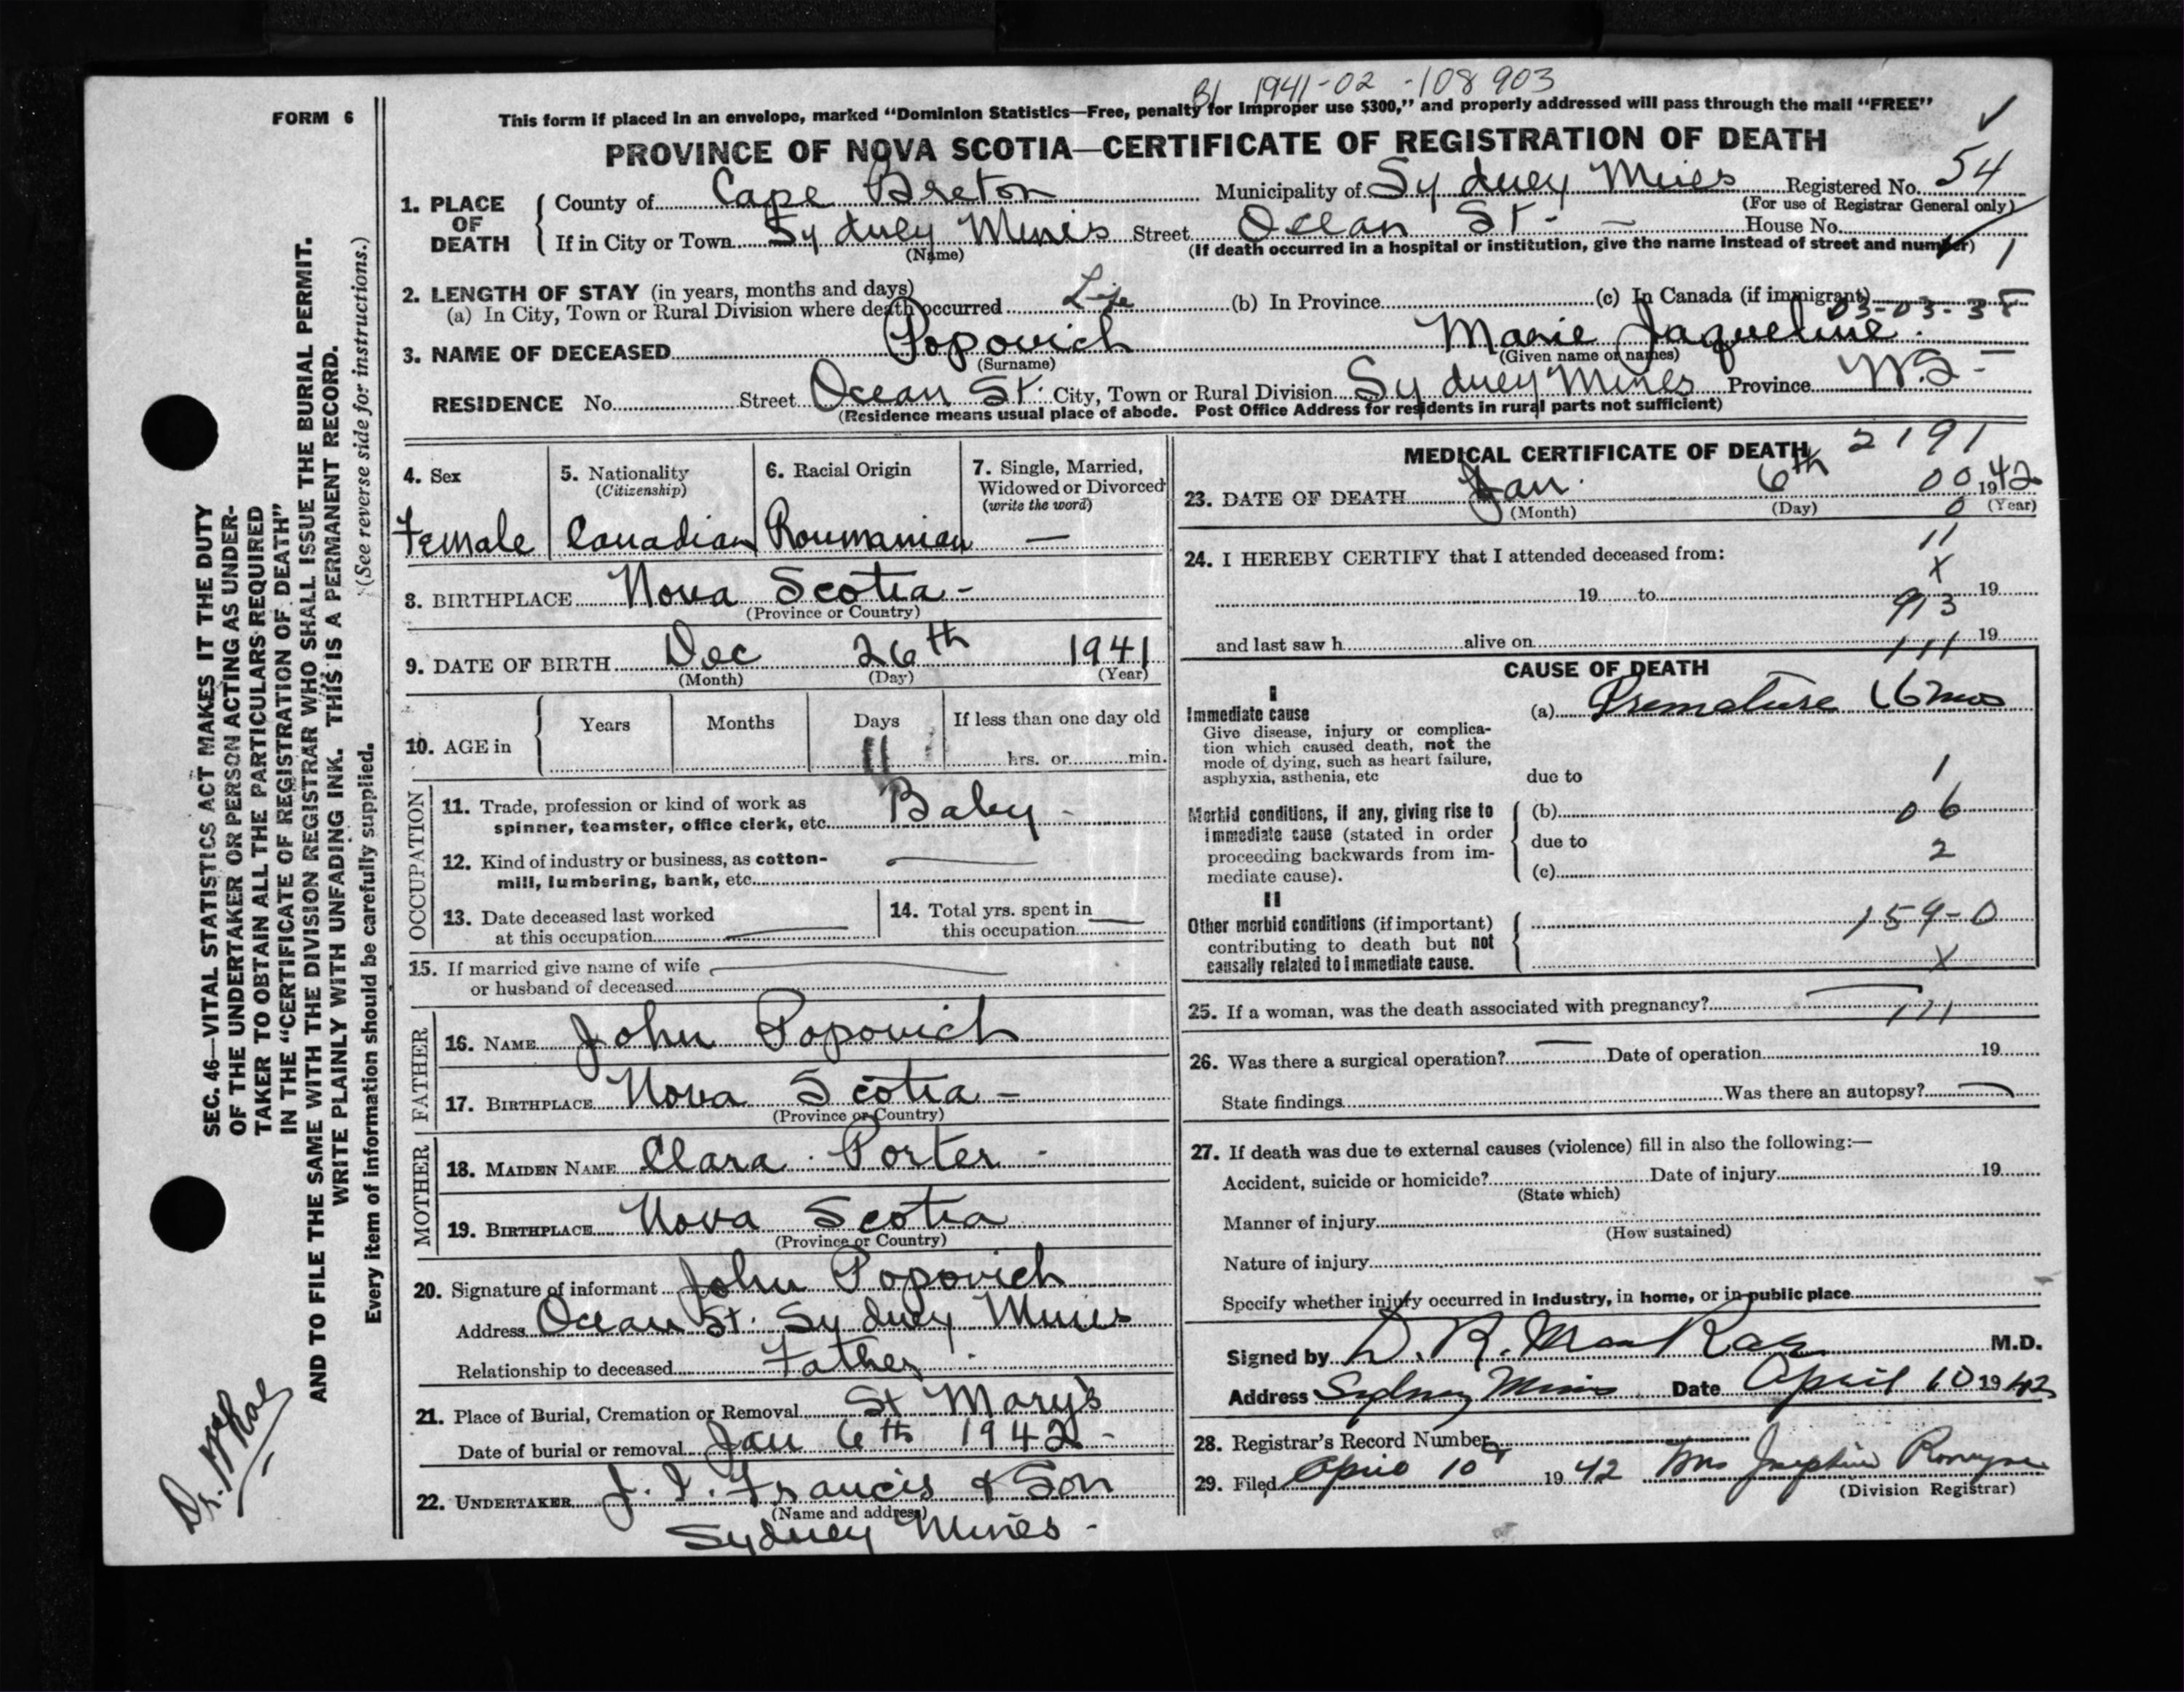 B1 1941-02-108903
FORM 6
This form if placed in an envelope, marked "Dominion Statistics—Free, penalty for improper use $300," and properly addressed will pass through the mail "FREE"
PROVINCE OF NOVA SCOTIA—CERTIFICATE OF REGISTRATION OF DEATH
1. PLACE OF DEATH
County of Cape Breton Municipality of Sydney Mines Registered No. 54
(For use of Registrar General only)
If in City or Town Sydney Mines Street Ocean St - House No.
(Name) (If death occurred in a hospital or institution, give the name instead of street and number) 1
2. LENGTH OF STAY (in years, months and days)
(a) In City, Town or Rural Division where death occurred Life (b) In Province (c) In Canada (if immigrant)
03-03-38
3. NAME OF DECEASED Popovich Marie Jaqueline
(Surname) (Given name or names)
RESIDENCE No. Street Ocean St. City, Town or Rural Division Sydney Mines Province N.S-
(Residence means usual place of abode. Post Office Address for residents in rural parts not sufficient)
4. Sex
Female
5. Nationality
(Citizenship)
Canadian
6. Racial Origin
Roumanian
7. Single, Married,
Widowed or Divorced
(write the word)
—
8. BIRTHPLACE Nova Scotia -
(Province or Country)
9. DATE OF BIRTH Dec 26th 1941
(Month) (Day) (Year)
10. AGE in
Years Months Days If less than one day old
11 hrs. or min.
OCCUPATION
11. Trade, profession or kind of work as
spinner, teamster, office clerk, etc. Baby -
12. Kind of industry or business, as cotton-
mill, lumbering, bank, etc.
13. Date deceased last worked
at this occupation
14. Total yrs. spent in
this occupation
15. If married give name of wife
or husband of deceased
FATHER
16. NAME John Popovich
17. BIRTHPLACE Nova Scotia -
(Province or Country)
MOTHER
18. MAIDEN NAME Clara Porter -
19. BIRTHPLACE Nova Scotia
(Province or Country)
20. Signature of informant John Popovich
Address Ocean St. Sydney Mines
Relationship to deceased Father
21. Place of Burial, Cremation or Removal St Mary's
Date of burial or removal Jan 6th 1942 -
22. UNDERTAKER J. I. Francis & Son
(Name and address)
Sydney Mines -
MEDICAL CERTIFICATE OF DEATH 2191
23. DATE OF DEATH Jan. 6th 00 1942
(Month) (Day) 0 (Year)
24. I HEREBY CERTIFY that I attended deceased from: 11
X
19 to 19
913
and last saw h alive on 19
111
CAUSE OF DEATH
I
Immediate cause
Give disease, injury or complica-
tion which caused death, not the
mode of dying, such as heart failure,
asphyxia, asthenia, etc
(a) Premature (6 mos
due to 1
Morbid conditions, if any, giving rise to
immediate cause (stated in order
proceeding backwards from im-
mediate cause).
(b) 06
due to 2
(c)
II
Other morbid conditions (if important)
contributing to death but not
causally related to immediate cause.
159-0
X
25. If a woman, was the death associated with pregnancy? 111
26. Was there a surgical operation? Date of operation 19
State findings Was there an autopsy?
27. If death was due to external causes (violence) fill in also the following:—
Accident, suicide or homicide? Date of injury 19
(State which)
Manner of injury
(How sustained)
Nature of injury
Specify whether injury occurred in Industry, in home, or in public place
Signed by D. R. MacRae M.D.
Address Sydney Mines Date April 10 1942
28. Registrar's Record Number
29. Filed April 10 1942 Mrs Josephine
(Division Registrar)
SEC. 46—VITAL STATISTICS ACT MAKES IT THE DUTY
OF THE UNDERTAKER OR PERSON ACTING AS UNDER-
TAKER TO OBTAIN ALL THE PARTICULARS REQUIRED
IN THE "CERTIFICATE OF REGISTRATION OF DEATH"
AND TO FILE THE SAME WITH THE DIVISION REGISTRAR WHO SHALL ISSUE THE BURIAL PERMIT.
WRITE PLAINLY WITH UNFADING INK. THIS IS A PERMANENT RECORD.
(See reverse side for instructions.)
Every item of information should be carefully supplied.